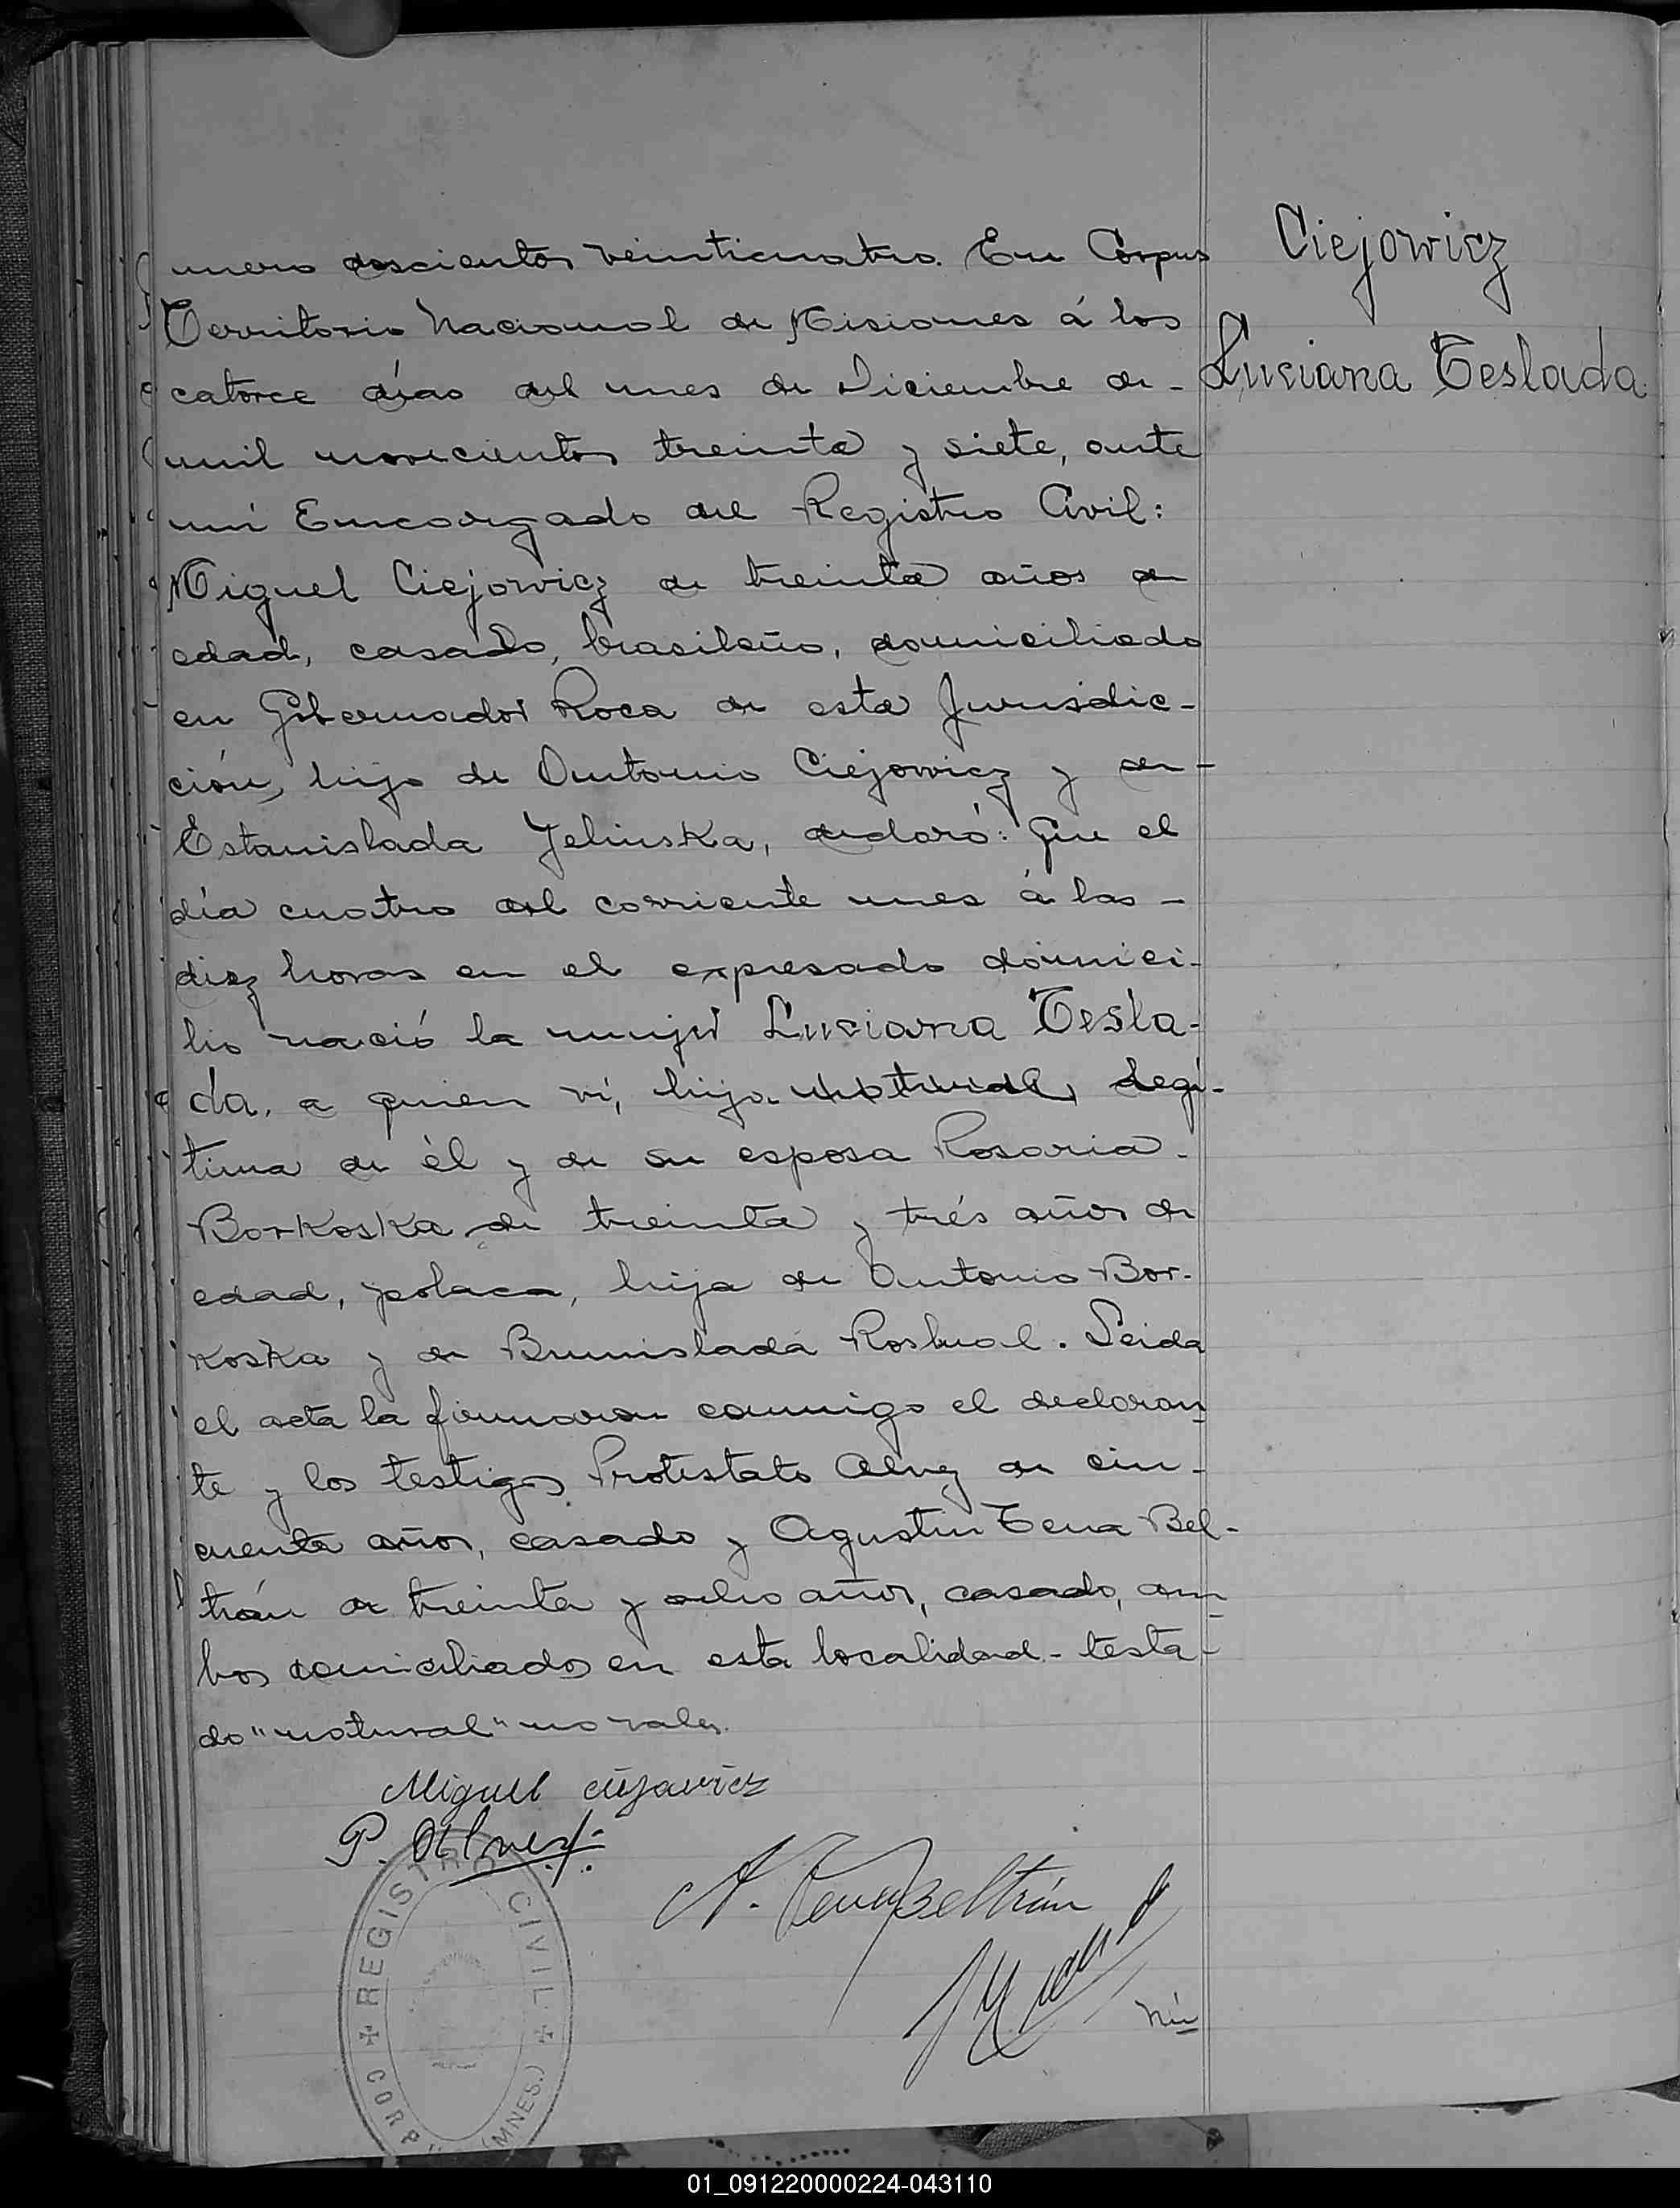 mero doscientos veinticuatro. En Corpus
Territorio Nacional de Misiones á los
catorce días del mes de Diciembre de -
mil novecientos treinta y siete, ante
mí Encargado del Registro Civil:
Miguel Ciejowicz de treinta años de
edad, casado, brasileño, domiciliado
en Gobernador Roca de esta Jurisdic-
ción, hijo de Antonio Ciejowicz y de -
Estanislada Jelinska, declaró: Que el
día cuatro del corriente mes á las -
diez horas en el expresado domici-
lio nació la mujer Luciana Tesla-
da, a quien ví, hija natural, legí-
tima de él y de su esposa Rosaria -
Borkoska de treinta y trés años de
edad, polaca, hija de Antonio Bor-
koska y de Brunislada Roshual. Leida
el acta la firmaron conmigo el declaran-
te y los testigos Protestato Alvez de cin-
cuenta años, casado y Agustin Tena Bel-
trán de treinta y ocho años, casado, am-
bos domiciliados en esta localidad - testa-
do "natural" no vale.
Miguel ciejavicz
P. Alvez
A. Tena Beltrán
Nú
Ciejowicz
Luciana Teslada.
REGISTRO CIVIL
CORPUS (MNES.)
01_091220000224-043110